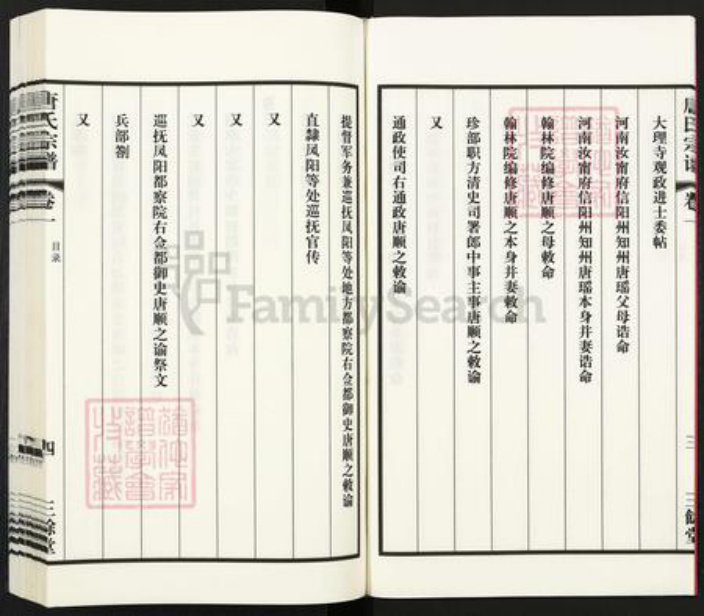 唐氏宗谱 卷一 三 三餘堂
大理寺观政进士委帖
河南汝甯府信阳州知州唐瑶父母诰命
河南汝甯府信阳州知州唐瑶本身并妻诰命
翰林院编修唐顺之母敕命
翰林院编修唐顺之本身并妻敕命
珍部职方清史司署郎中事主事唐顺之敕谕
又
通政使司右通政唐顺之敕谕
提督军务兼巡抚凤阳等处地方都察院右佥都御史唐顺之敕谕
直隸凤阳等处巡抚官传
又
又
又
巡抚凤阳都察院右佥都御史唐顺之谕祭文
兵部劄
又
唐氏宗谱 卷一 目录 四 三餘堂
FamilySearch